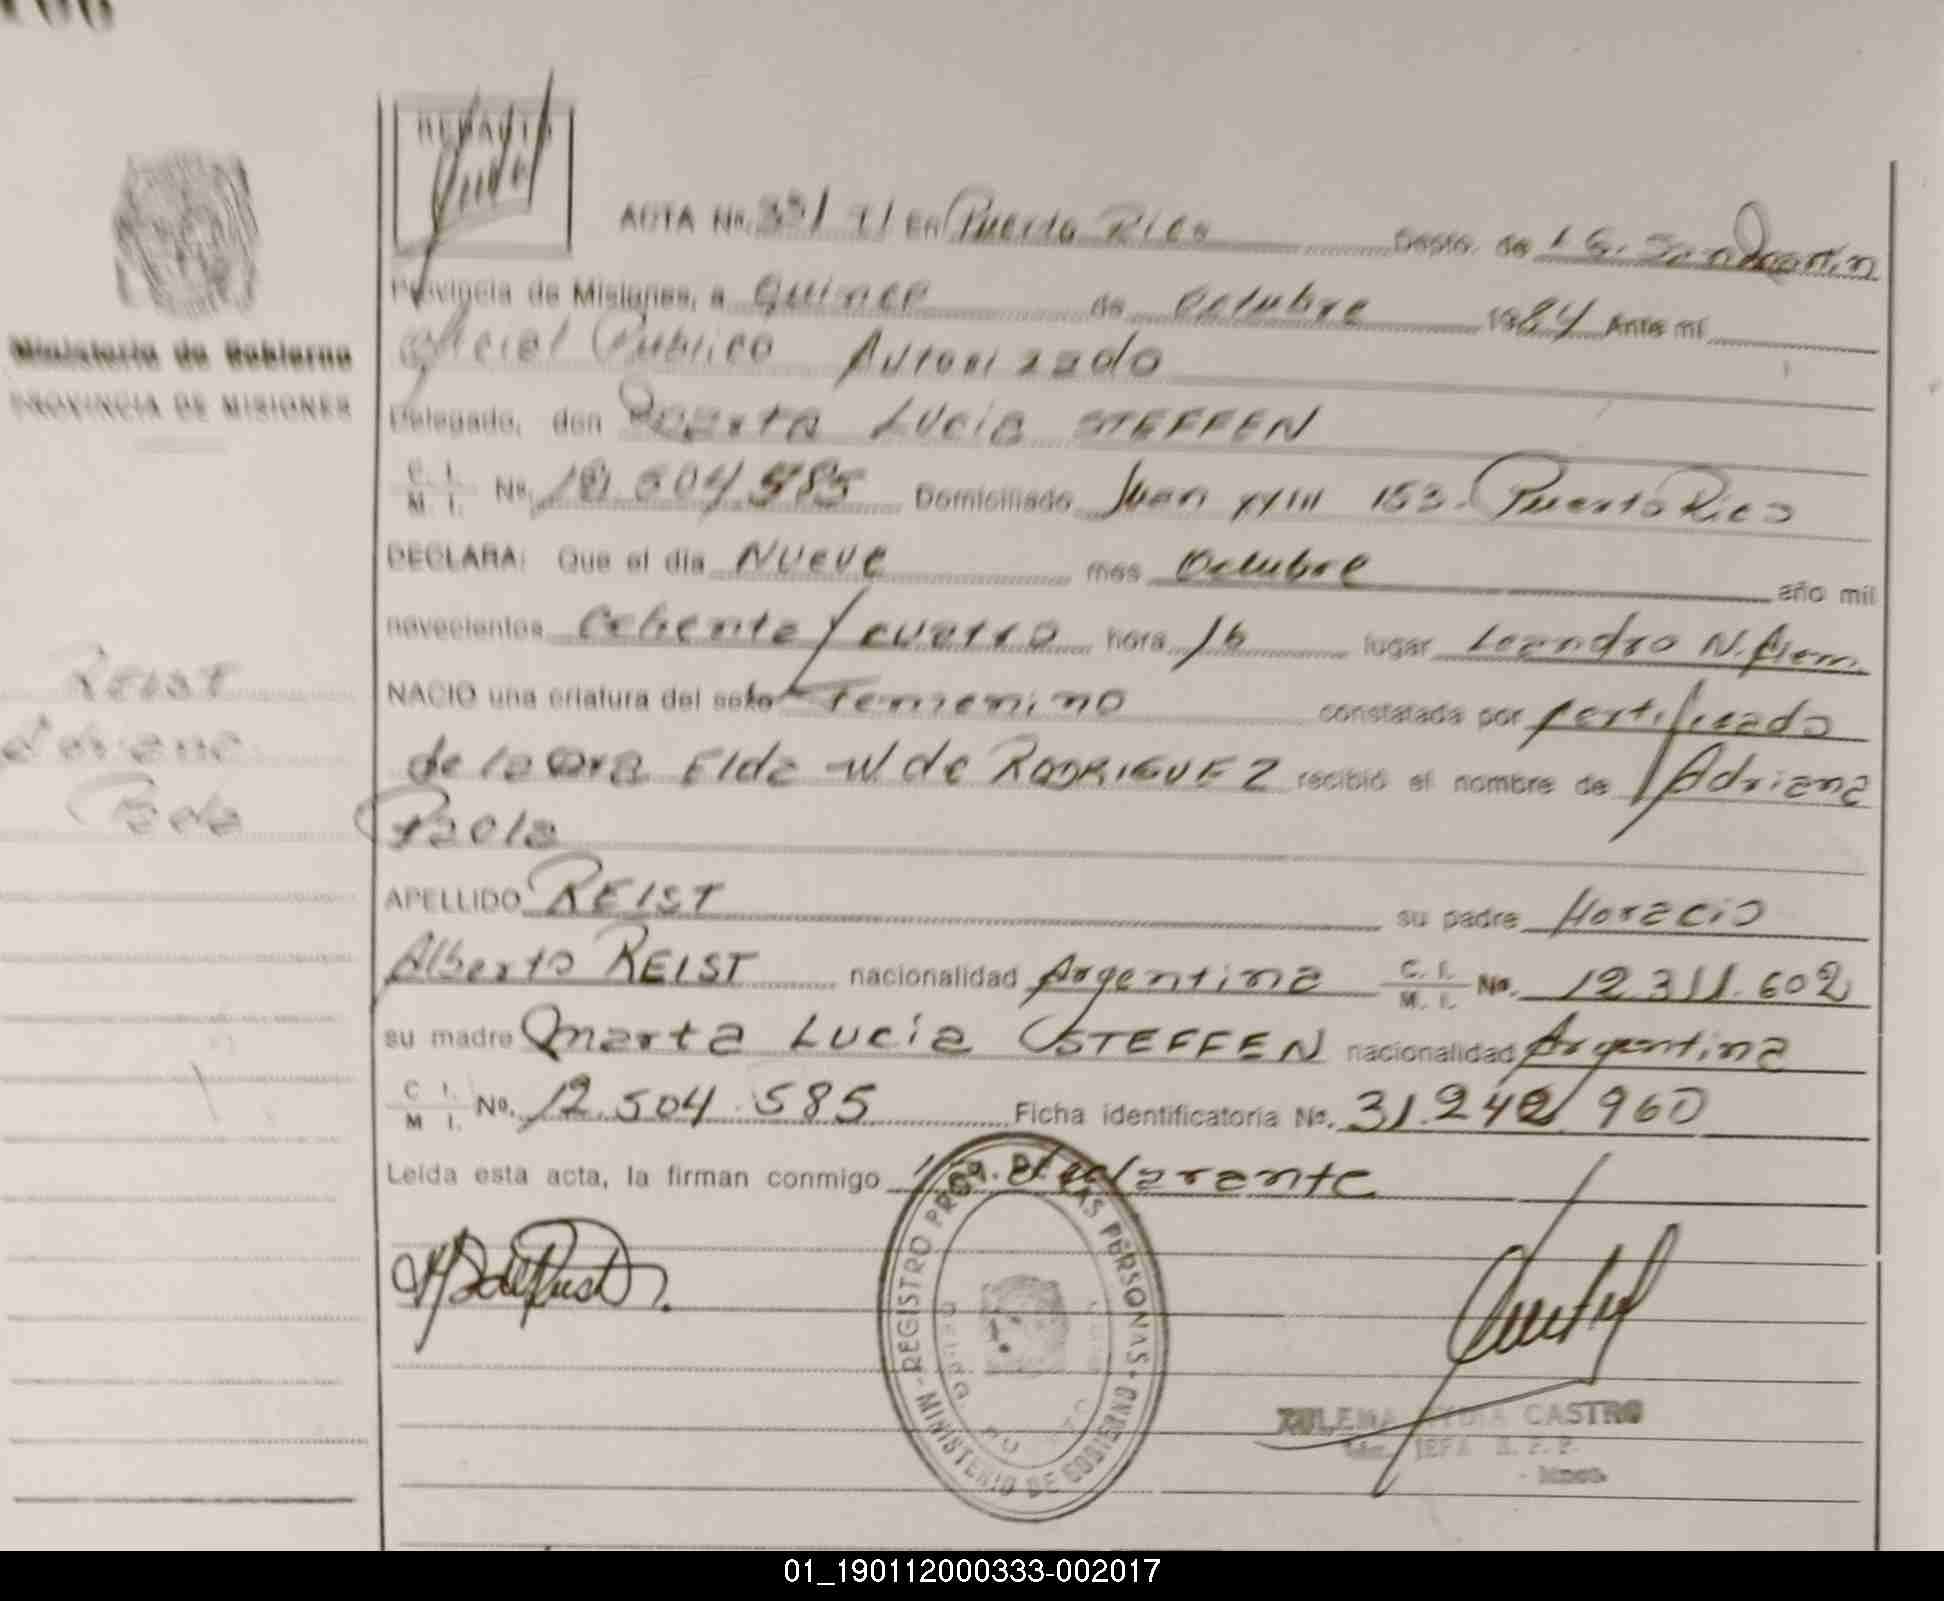 ACTA Nº. 331 T I En Puerto Rico Depto. de L.G. San Martin
Provincia de Misiones, a Quince de Octubre 1984 Ante mí
Oficial Público Autorizado
Ministerio de Gobierno
PROVINCIA DE MISIONES
Delegado, don Marta Lucia STEFFEN
C. I. M. I. Nº. 12.504.585 Domiciliado Juan XXIII 153. Puerto Rico
DECLARA: Que el día Nueve mes Octubre año mil
novecientos Ochenta y cuatro hora 16 lugar Leandro N. Alem
NACIO una criatura del sexo Femenino constatada por Certificado
de la Dra Elda W. de RODRIGUEZ recibió el nombre de Adriana
Paola
REIST
Adriana
Paola
APELLIDO REIST su padre Horacio
Alberto REIST nacionalidad Argentina C. I. M. I. Nº. 12.311.602
su madre Marta Lucia STEFFEN nacionalidad Argentina
C I. M I. Nº. 12.504.585 Ficha identificatoria Nº. 31.242.960
Leída esta acta, la firman conmigo la declarante
REGISTRO PROV. DE LAS PERSONAS - MINISTERIO DE GOBIERNO
ZULEMA LYDIA CASTRO
JEFA R. P. P.
- Mnes.
01_190112000333-002017